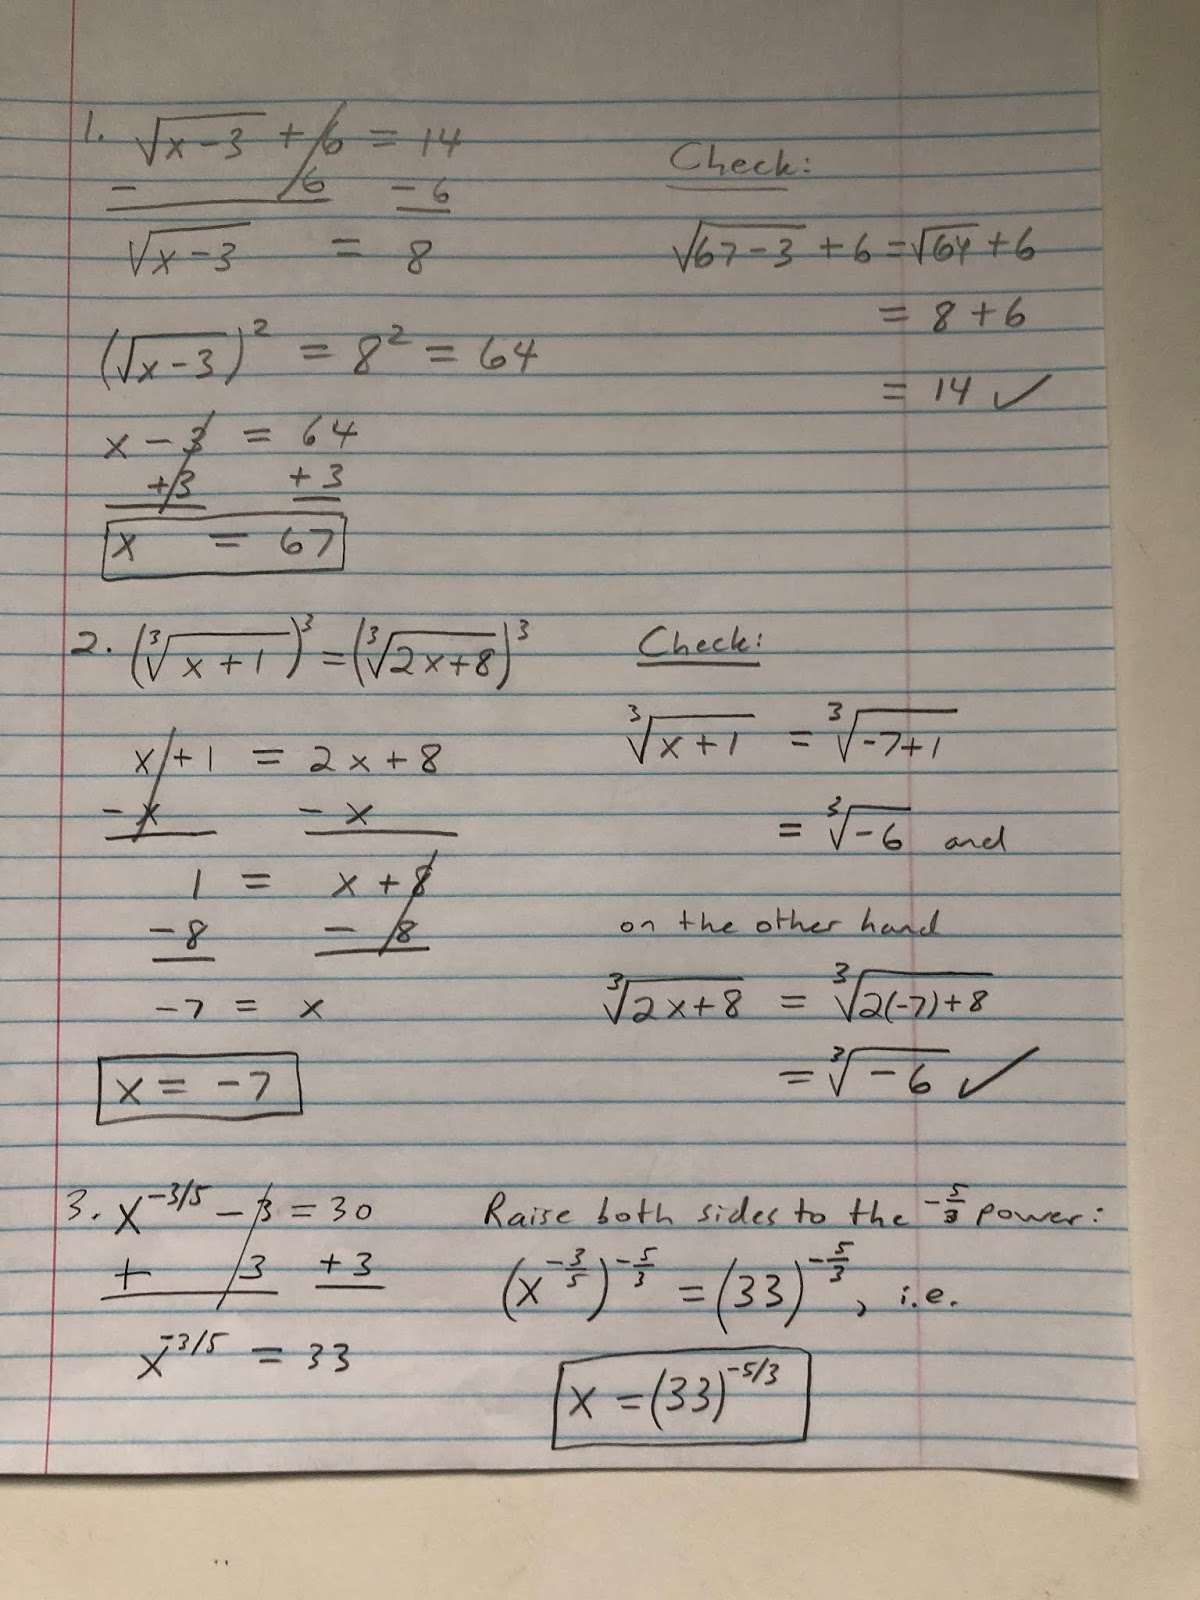 1. √(x-3) + 6 = 14
- 6 - 6
√(x-3) = 8
(√(x-3))² = 8² = 64
x - 3 = 64
+3 +3
x = 67
Check:
√(67-3) + 6 = √64 + 6
= 8 + 6
= 14 ✓
2. (∛(x+1))³ = (∛(2x+8))³
x + 1 = 2x + 8
- x - x
1 = x + 8
-8 - 8
-7 = x
x = -7
Check:
∛(x+1) = ∛(-7+1)
= ∛(-6) and
on the other hand
∛(2x+8) = ∛(2(-7)+8)
= ∛(-6) ✓
3. x^(-3/5) - 3 = 30
+ 3 +3
x^(-3/5) = 33
Raise both sides to the -5/3 power:
(x^(-3/5))^(-5/3) = (33)^(-5/3), i.e.
x = (33)^(-5/3)